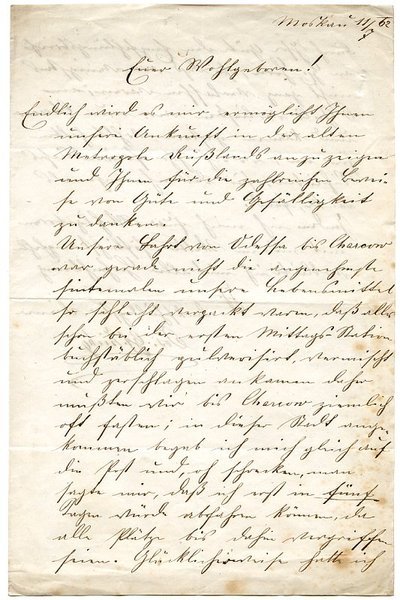 Moskau 11/7 62
Euer Wohlgeboren!
Endlich wird es mir, ermöglicht Ihnen
unsere Ankunft in der alten
Metropole Rußlands anzuzeigen
und Ihnen für die zahlreichen Bewei-
se von Güte und Gefälligkeit
zu danken.
Unsere Fahrt von Odessa bis Charcow
war gerade nicht die angenehmste
sintemalen unsere Lebensmittel
so schlecht verpackt waren, daß alles
schon bei der ersten Mittags-Station
buchstäblich pulverisirt, vermischt
und zerschlagen ankamen daher
mußten wir bis Charcow ziemlich
oft fasten; in dieser Stadt ange-
kommen begab ich mich gleich auf
die Post und, oh schrecken, man
sagte mir, daß ich erst in fünf
Tagen würde abfahren können, da
alle Plätze bis dahin vergriffen
seien. Glücklicherweise hatte ich